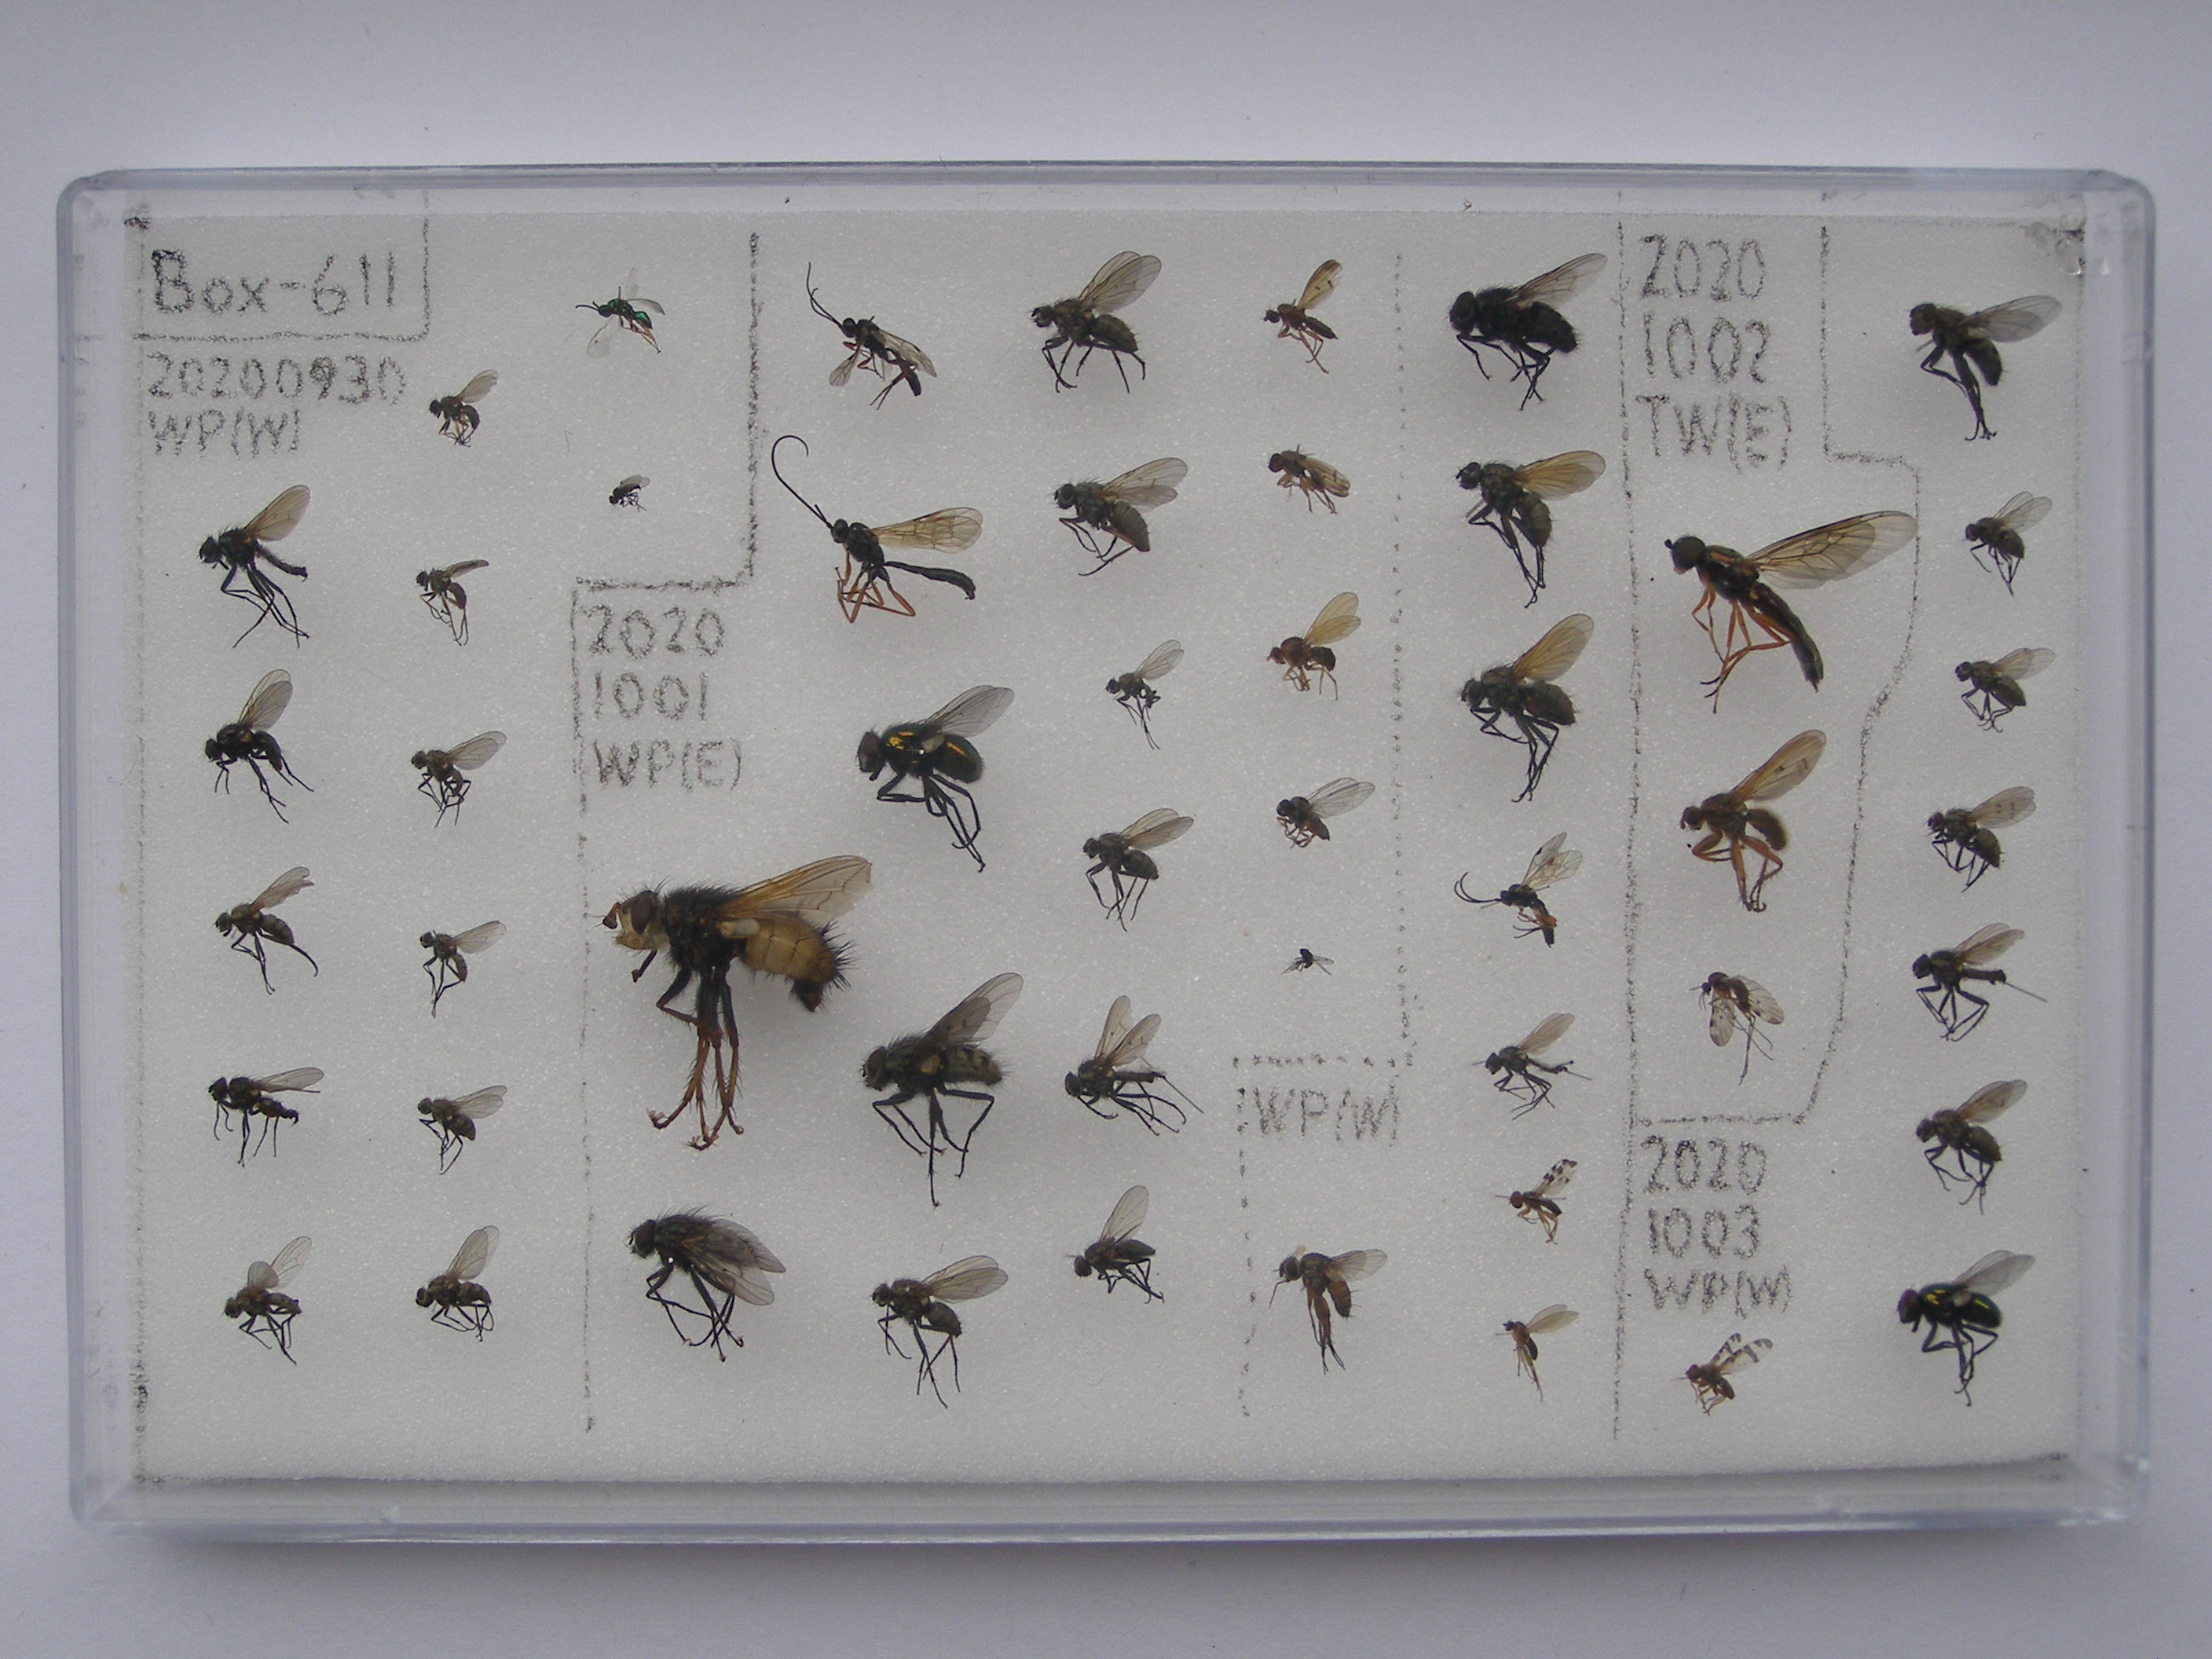 Box-611
20200930
WP(W)
2020
1001
WP(E)
WP(W)
2020
1002
TW(E)
2020
1003
WP(W)